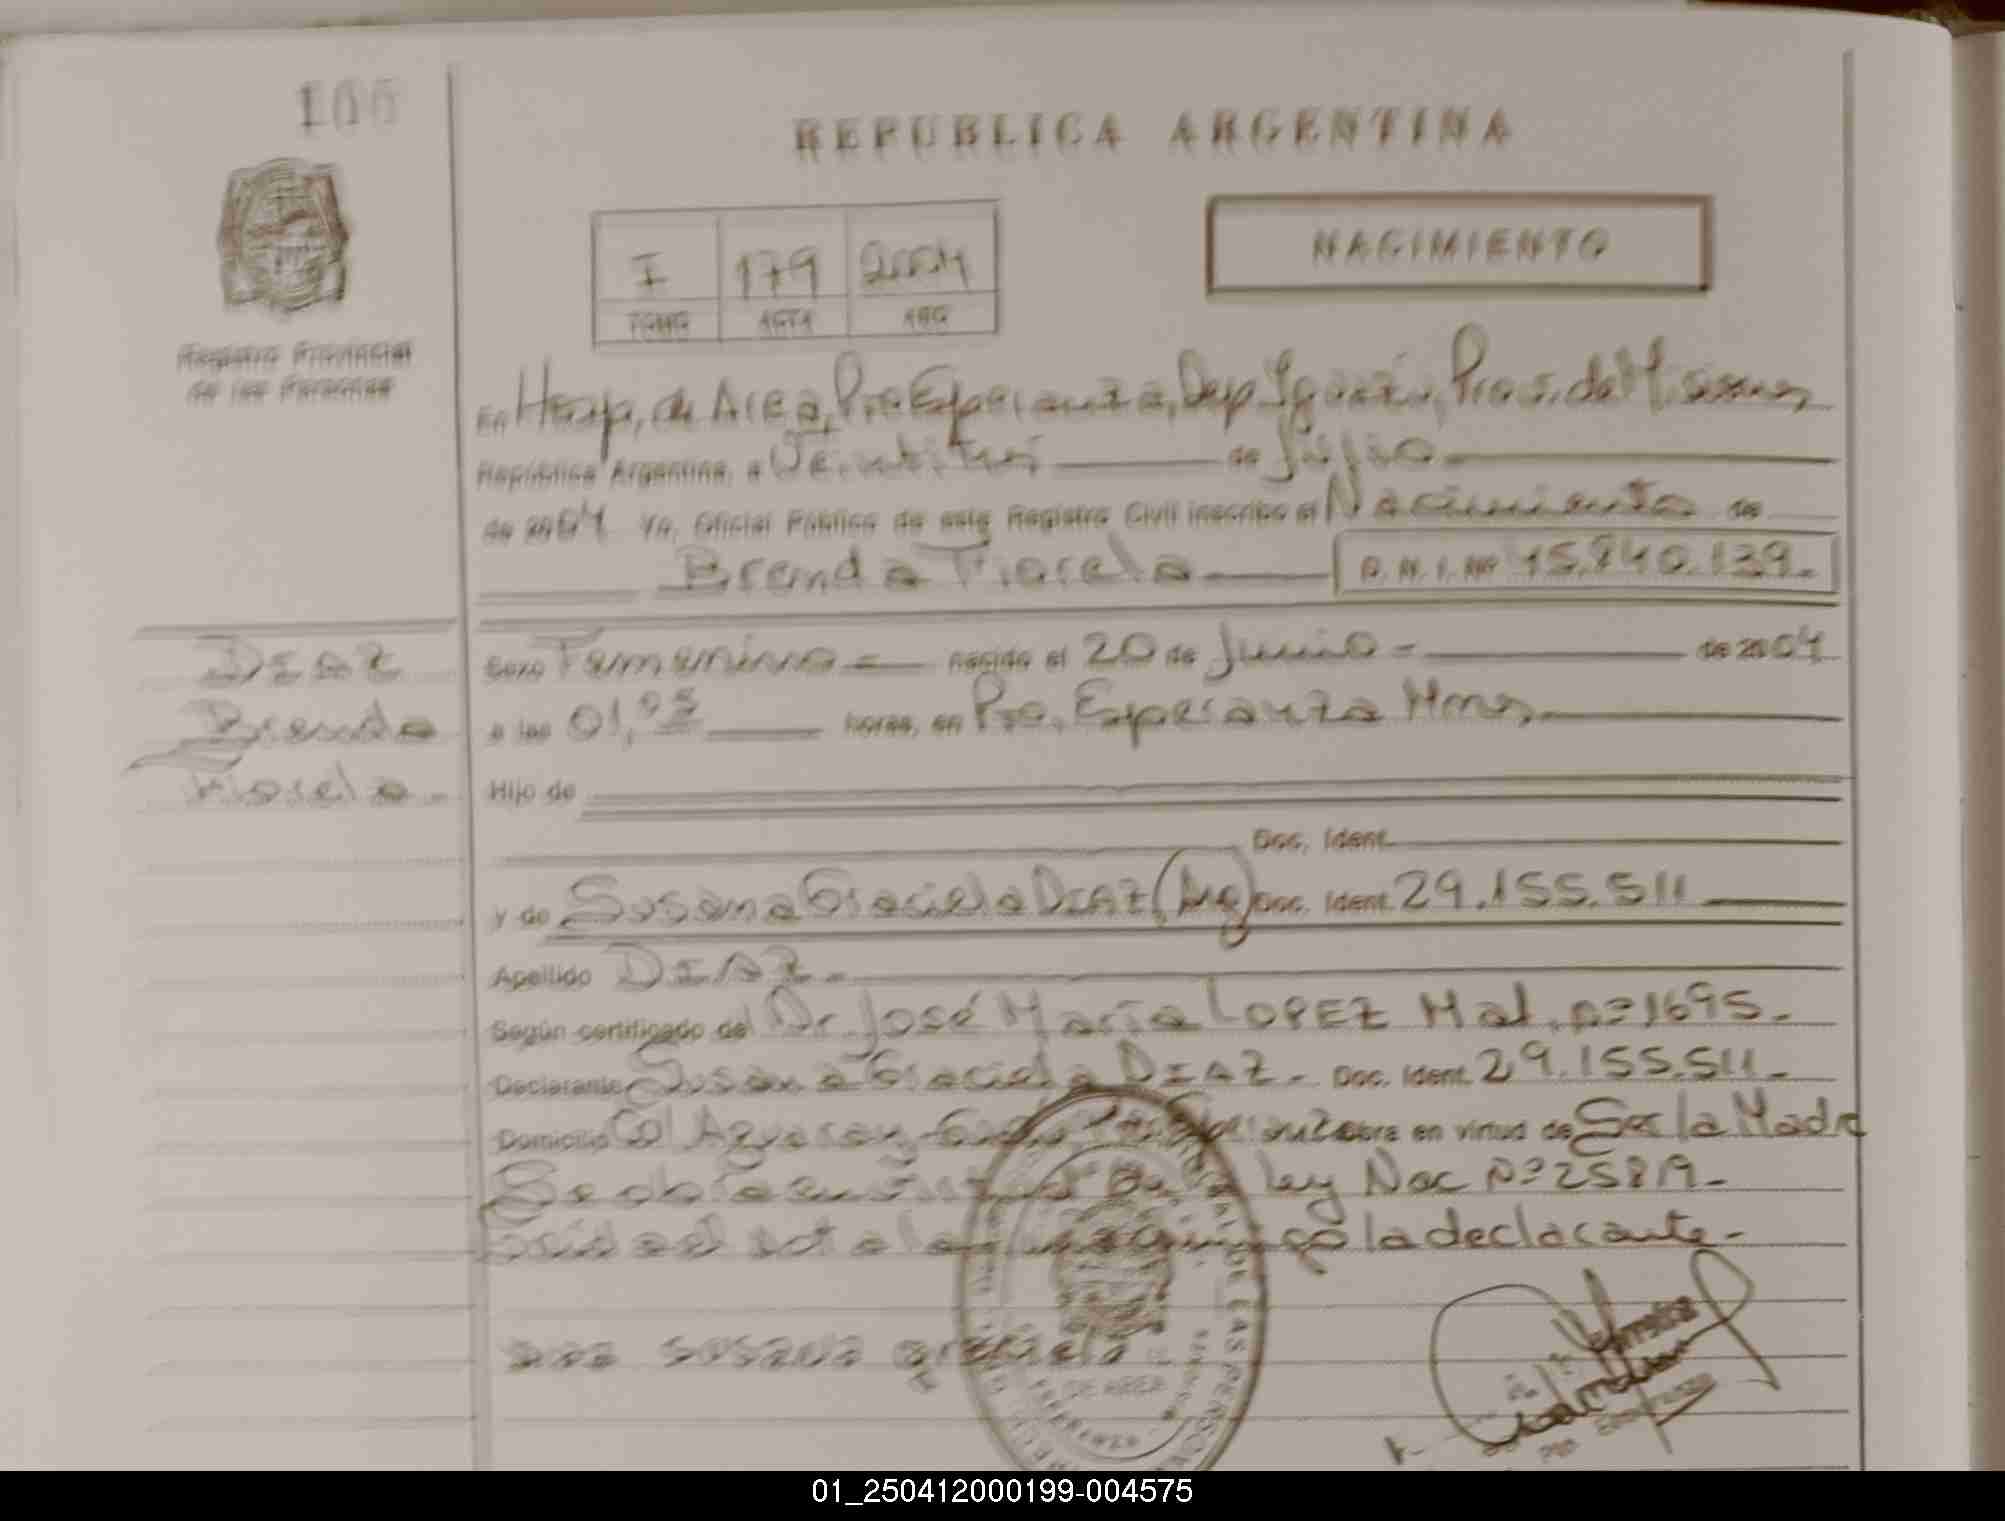 100
REPUBLICA ARGENTINA
I 179 2004
TOMO ACTA AÑO
NACIMIENTO
Registro Provincial
de las Personas
En Hosp. de Area, Pto Esperanza, Dep. Iguazú, Prov. de Misiones
República Argentina, a Veintitrés de Julio
de 2004 Yo, Oficial Público de este Registro Civil inscribo el Nacimiento de
Brenda Fiorela D.N.I. Nº 45.840.139.-
DIAZ
Brenda
Fiorela.-
Sexo Femenino nacido el 20 de Junio - de 2004
a las 01,05 horas, en Pto. Esperanza Mnes
Hijo de
Doc. Ident.
y de Susana Graciela DIAZ, (Arg) Doc. Ident. 29.155.511
Apellido DIAZ.-
Según certificado de Dr. José María LOPEZ Mat. nº 1695.-
Declarante Susana Graciela DIAZ.- Doc. Ident. 29.155.511.-
Domicilio Col Aguaray Guazú Pto Esperanza obra en virtud de Ser la Madre
Se obra en virtud de la ley Nac Nº 25819.-
la declarante.-
diaz susana graciela
DE LAS PERSONAS
DE AREA
ESPERANZA
01_250412000199-004575